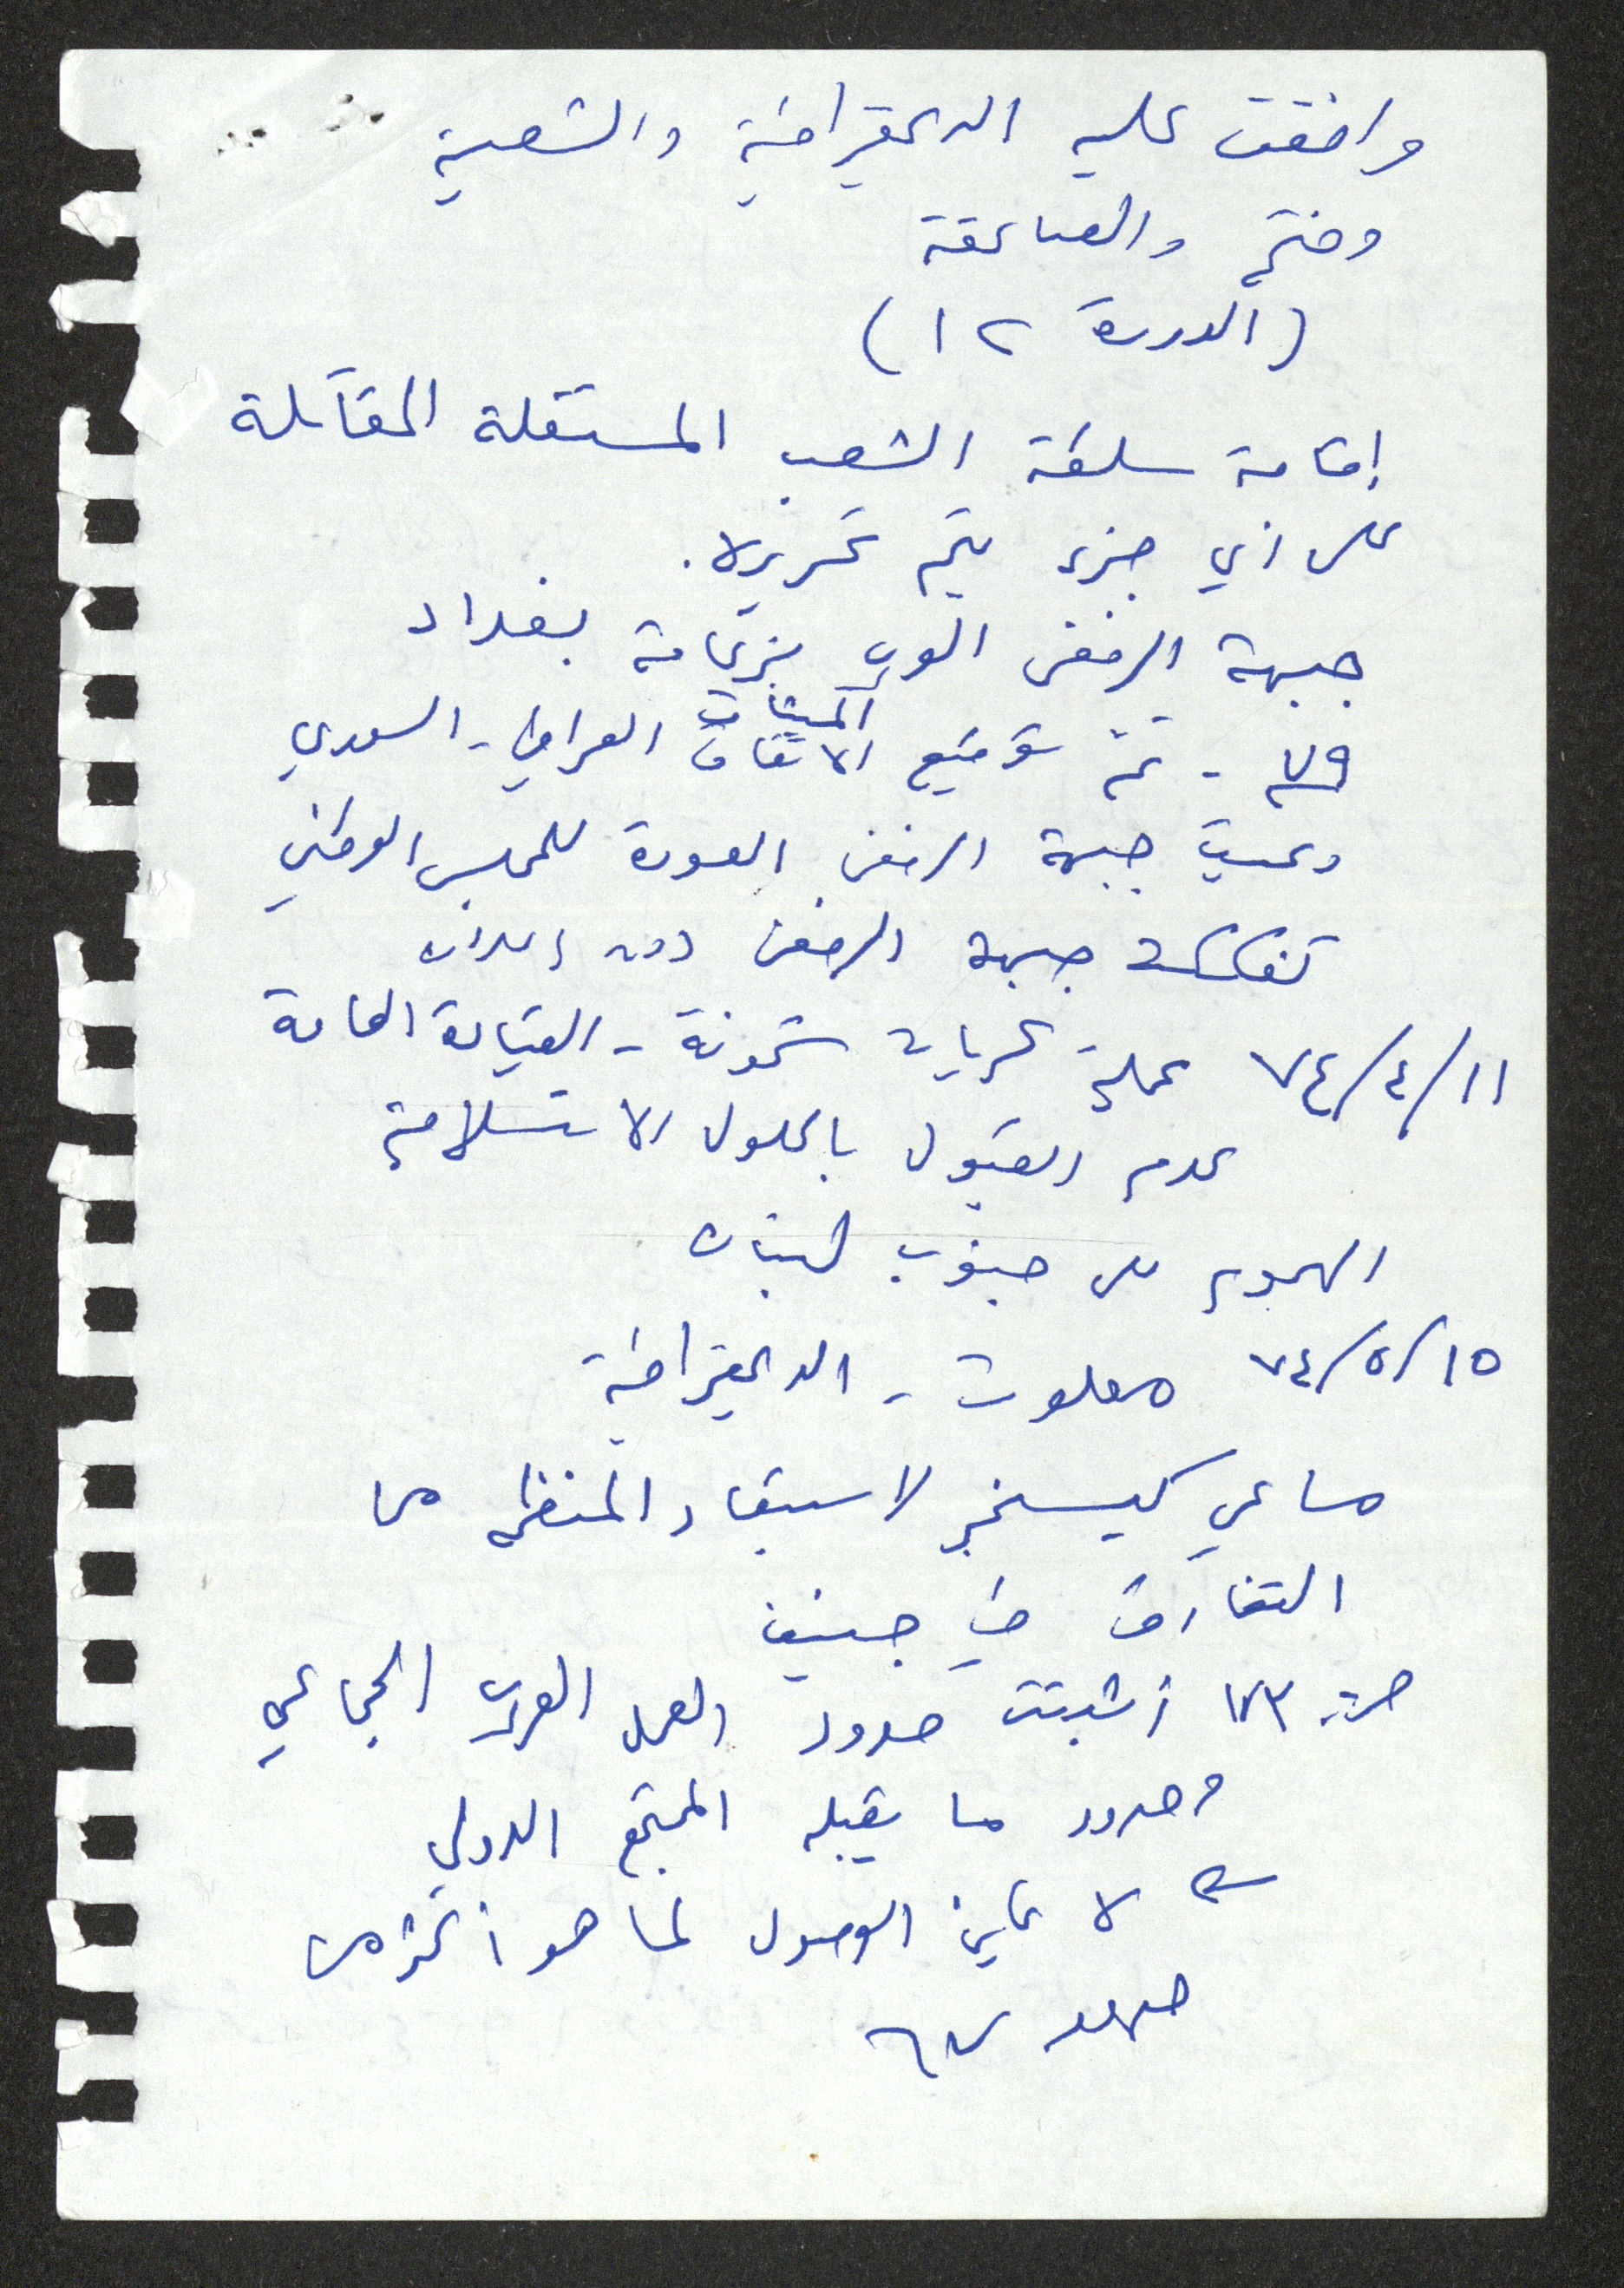 وافقت عليه الديمقراطية والشعبية
وفتح والصاعقة
(الدورة ١٢)
إقامة سلطة الشعب المستقلة المقاتلة
على أي جزء يتم تحريره.
جبهة الرفض القوى بزعامة بغداد
الميثاق
٧٩ - تم توقيع الاتفاق العراقي - السوري
دعيت جبهة الرفض العودة للمجلس الوطني
تفككت جبهة الرفض دون إعلان
٧٤/٤/١١ عملية كريات شمونة - القيادة العامة
عدم القبول بالحلول الاستسلامية
الهجوم على جنوب لبنان
٧٤/٥/١٥ معلوت - الديمقراطية
مساعي كيسنجر لاستبعاد المنظمة من
التفاوض في جنيف
حرب ٧٣ أثبتت حدود العمل العربي الجماعي
وحدود ما يقبله المجتمع الدولي
لا يمكن الوصول لما هو أكثر من
حدود ٦٧